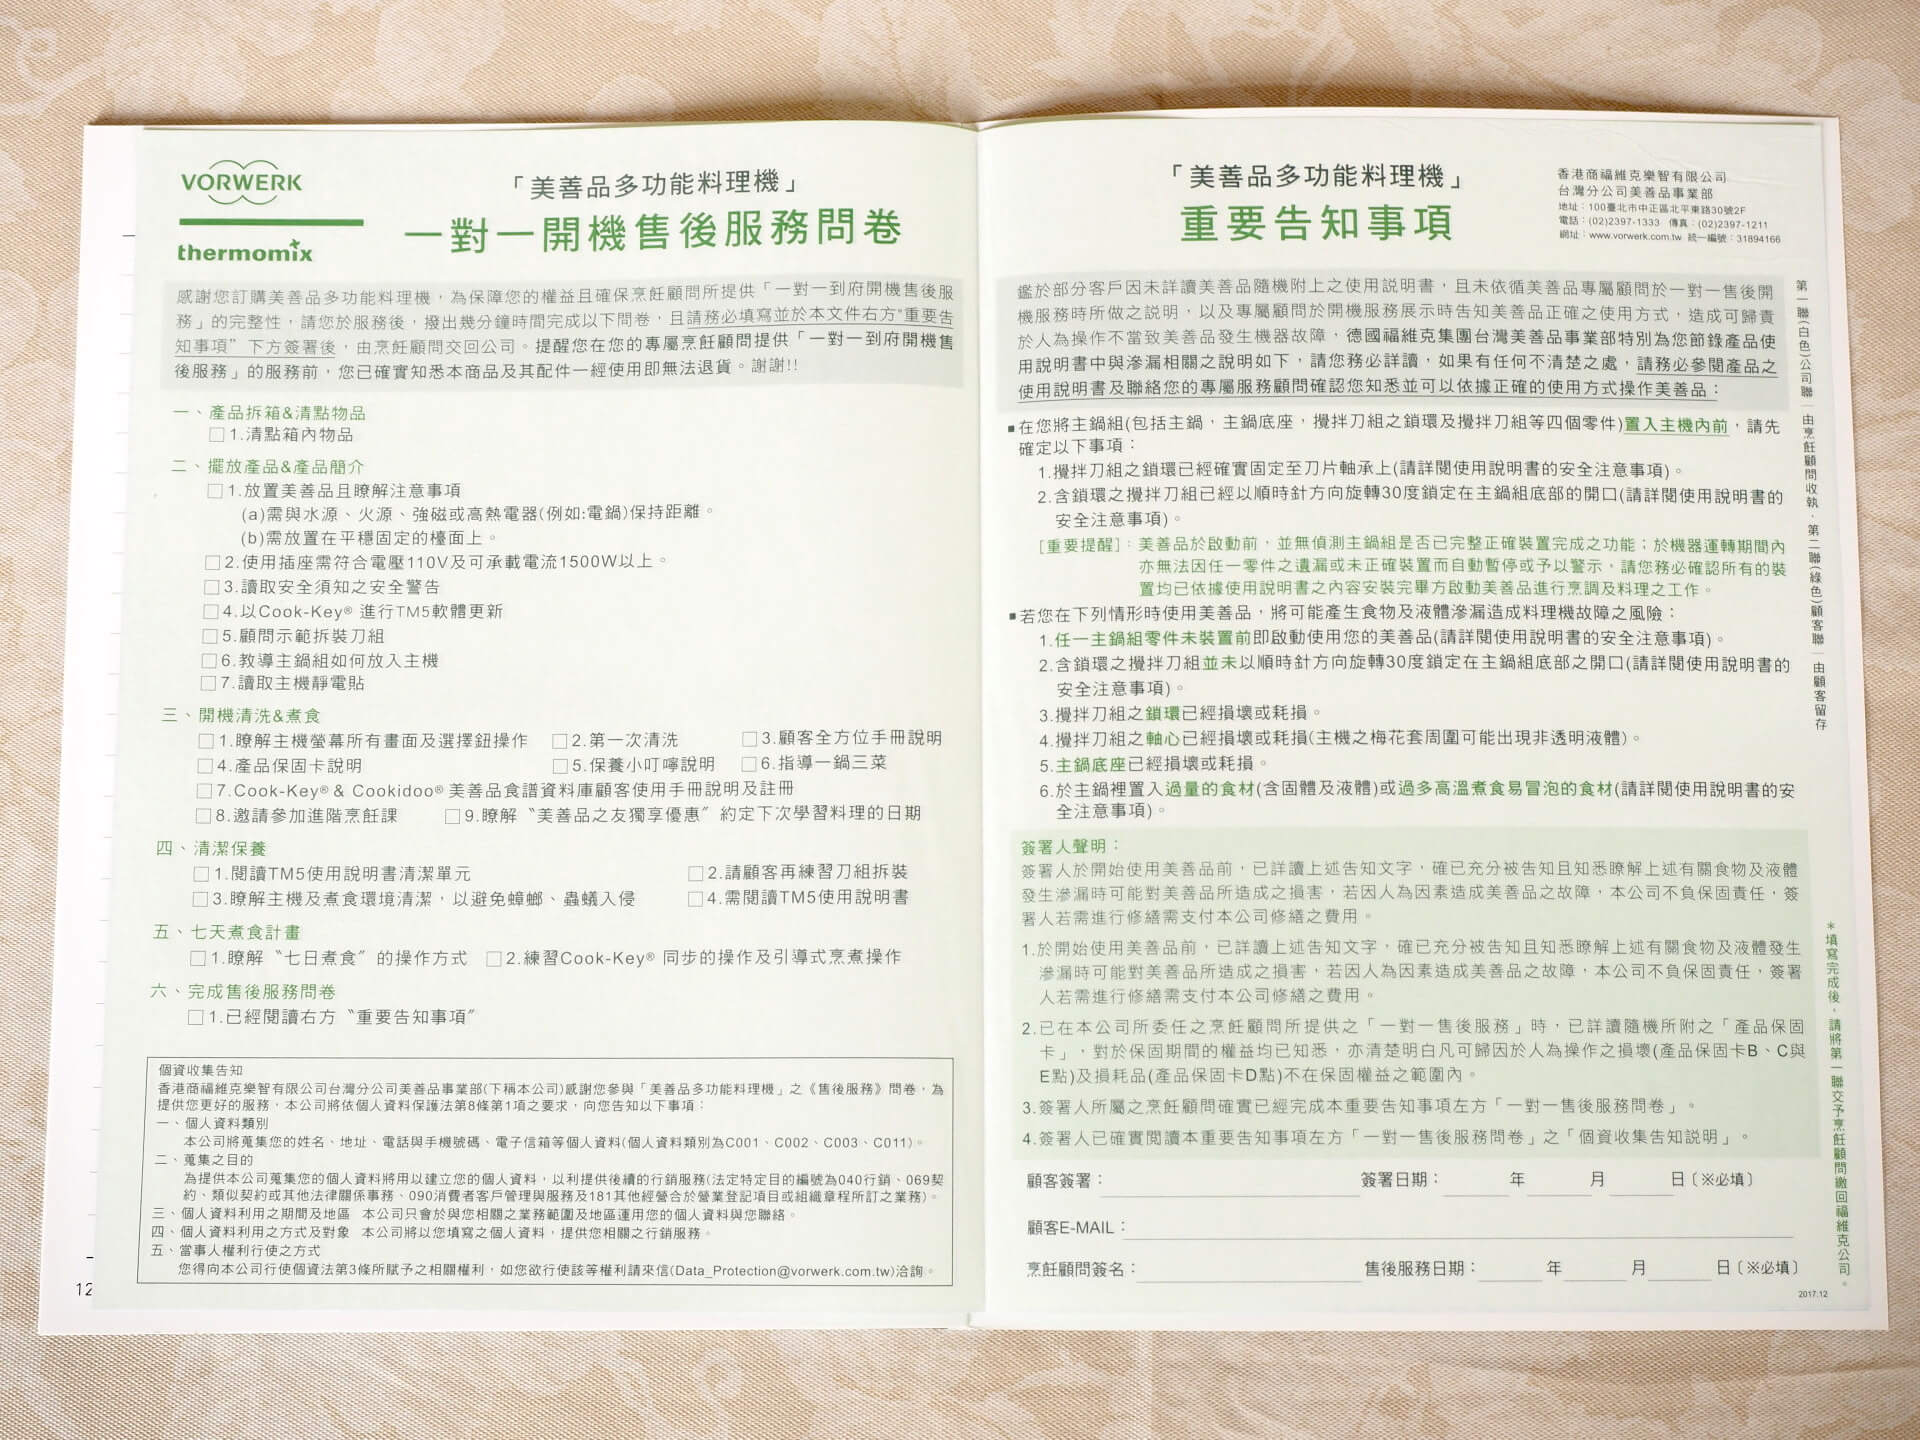 VORWERK
thermomix
「美善品多功能料理機」
一對一開機售後服務問卷
感謝您訂購美善品多功能料理機，為保障您的權益且確保烹飪顧問所提供「一對一到府開機售後服
務」的完整性，請您於服務後，撥出幾分鐘時間完成以下問卷，且請務必填寫並於本文件右方"重要告
知事項"下方簽署後，由烹飪顧問交回公司。提醒您在您的專屬烹飪顧問提供「一對一到府開機售
後服務」的服務前，您已確實知悉本商品及其配件一經使用即無法退貨。謝謝!!
一、產品拆箱&清點物品
□1.清點箱內物品
二、擺放產品&產品簡介
□1.放置美善品且瞭解注意事項
(a)需與水源、火源、強磁或高熱電器(例如:電鍋)保持距離。
(b)需放置在平穩固定的檯面上。
□2.使用插座需符合電壓110V及可承載電流1500W以上。
□3.讀取安全須知之安全警告
□4.以Cook-Key® 進行TM5軟體更新
□5.顧問示範拆裝刀組
□6.教導主鍋組如何放入主機
□7.讀取主機靜電貼
三、開機清洗&煮食
□1.瞭解主機螢幕所有畫面及選擇鈕操作 □2.第一次清洗 □3.顧客全方位手冊說明
□4.產品保固卡說明 □5.保養小叮嚀說明 □6.指導一鍋三菜
□7.Cook-Key® & Cookidoo® 美善品食譜資料庫顧客使用手冊說明及註冊
□8.邀請參加進階烹飪課 □9.瞭解〝美善品之友獨享優惠〞約定下次學習料理的日期
四、清潔保養
□1.閱讀TM5使用說明書清潔單元 □2.請顧客再練習刀組拆裝
□3.瞭解主機及煮食環境清潔，以避免蟑螂、蟲蟻入侵 □4.需閱讀TM5使用說明書
五、七天煮食計畫
□1.瞭解〝七日煮食〞的操作方式 □2.練習Cook-Key® 同步的操作及引導式烹煮操作
六、完成售後服務問卷
□1.已經閱讀右方〝重要告知事項〞
個資收集告知
香港商福維克樂智有限公司台灣分公司美善品事業部(下稱本公司)感謝您參與「美善品多功能料理機」之《售後服務》問卷，為
提供您更好的服務，本公司將依個人資料保護法第8條第1項之要求，向您告知以下事項：
一、個人資料類別
本公司將蒐集您的姓名、地址、電話與手機號碼、電子信箱等個人資料(個人資料類別為C001、C002、C003、C011)。
二、蒐集之目的
為提供本公司蒐集您的個人資料將用以建立您的個人資料，以利提供後續的行銷服務(法定特定目的編號為040行銷、069契
約、類似契約或其他法律關係事務、090消費者客戶管理與服務及181其他經營合於營業登記項目或組織章程所訂之業務)。
三、個人資料利用之期間及地區 本公司只會於與您相關之業務範圍及地區運用您的個人資料與您聯絡。
四、個人資料利用之方式及對象 本公司將以您填寫之個人資料，提供您相關之行銷服務。
五、當事人權利行使之方式
您得向本公司行使個資法第3條所賦予之相關權利，如您欲行使該等權利請來信(Data_Protection@vorwerk.com.tw)洽詢。
12
「美善品多功能料理機」
重要告知事項
香港商福維克樂智有限公司
台灣分公司美善品事業部
地址：100臺北市中正區北平東路30號2F
電話：(02)2397-1333 傳真：(02)2397-1211
網址：www.vorwerk.com.tw 統一編號：31894166
鑑於部分客戶因未詳讀美善品隨機附上之使用說明書，且未依循美善品專屬顧問於一對一售後開
機服務時所做之說明，以及專屬顧問於開機服務展示時告知美善品正確之使用方式，造成可歸責
於人為操作不當致美善品發生機器故障，德國福維克集團台灣美善品事業部特別為您節錄產品使
用說明書中與滲漏相關之說明如下，請您務必詳讀，如果有任何不清楚之處，請務必參閱產品之
使用說明書及聯絡您的專屬服務顧問確認您知悉並可以依據正確的使用方式操作美善品：
▪在您將主鍋組(包括主鍋，主鍋底座，攪拌刀組之鎖環及攪拌刀組等四個零件)置入主機內前，請先
確定以下事項：
1.攪拌刀組之鎖環已經確實固定至刀片軸承上(請詳閱使用說明書的安全注意事項)。
2.含鎖環之攪拌刀組已經以順時針方向旋轉30度鎖定在主鍋組底部的開口(請詳閱使用說明書的
安全注意事項)。
[重要提醒]：美善品於啟動前，並無偵測主鍋組是否已完整正確裝置完成之功能；於機器運轉期間內
亦無法因任一零件之遺漏或未正確裝置而自動暫停或予以警示，請您務必確認所有的裝
置均已依據使用說明書之內容安裝完畢方啟動美善品進行烹調及料理之工作。
▪若您在下列情形時使用美善品，將可能產生食物及液體滲漏造成料理機故障之風險：
1.任一主鍋組零件未裝置前即啟動使用您的美善品(請詳閱使用說明書的安全注意事項)。
2.含鎖環之攪拌刀組並未以順時針方向旋轉30度鎖定在主鍋組底部之開口(請詳閱使用說明書的
安全注意事項)。
3.攪拌刀組之鎖環已經損壞或耗損。
4.攪拌刀組之軸心已經損壞或耗損(主機之梅花套周圍可能出現非透明液體)。
5.主鍋底座已經損壞或耗損。
6.於主鍋裡置入過量的食材(含固體及液體)或過多高溫煮食易冒泡的食材(請詳閱使用說明書的安
全注意事項)。
簽署人聲明：
簽署人於開始使用美善品前，已詳讀上述告知文字，確已充分被告知且知悉瞭解上述有關食物及液體
發生滲漏時可能對美善品所造成之損害，若因人為因素造成美善品之故障，本公司不負保固責任，簽
署人若需進行修繕需支付本公司修繕之費用。
1.於開始使用美善品前，已詳讀上述告知文字，確已充分被告知且知悉瞭解上述有關食物及液體發生
滲漏時可能對美善品所造成之損害，若因人為因素造成美善品之故障，本公司不負保固責任，簽署
人若需進行修繕需支付本公司修繕之費用。
2.已在本公司所委任之烹飪顧問所提供之「一對一售後服務」時，已詳讀隨機所附之「產品保固
卡」，對於保固期間的權益均已知悉，亦清楚明白凡可歸因於人為操作之損壞(產品保固卡B、C與
E點)及損耗品(產品保固卡D點)不在保固權益之範圍內。
3.簽署人所屬之烹飪顧問確實已經完成本重要告知事項左方「一對一售後服務問卷」。
4.簽署人已確實閱讀本重要告知事項左方「一對一售後服務問卷」之「個資收集告知說明」。
顧客簽署： 簽署日期： 年 月 日〔※必填〕
顧客E-MAIL：
烹飪顧問簽名： 售後服務日期： 年 月 日〔※必填〕
2017.12
第一聯(白色)公司聯｜由烹飪顧問收執．第二聯(綠色)顧客聯｜由顧客留存
＊填寫完成後，請將第一聯交予烹飪顧問繳回福維克公司。